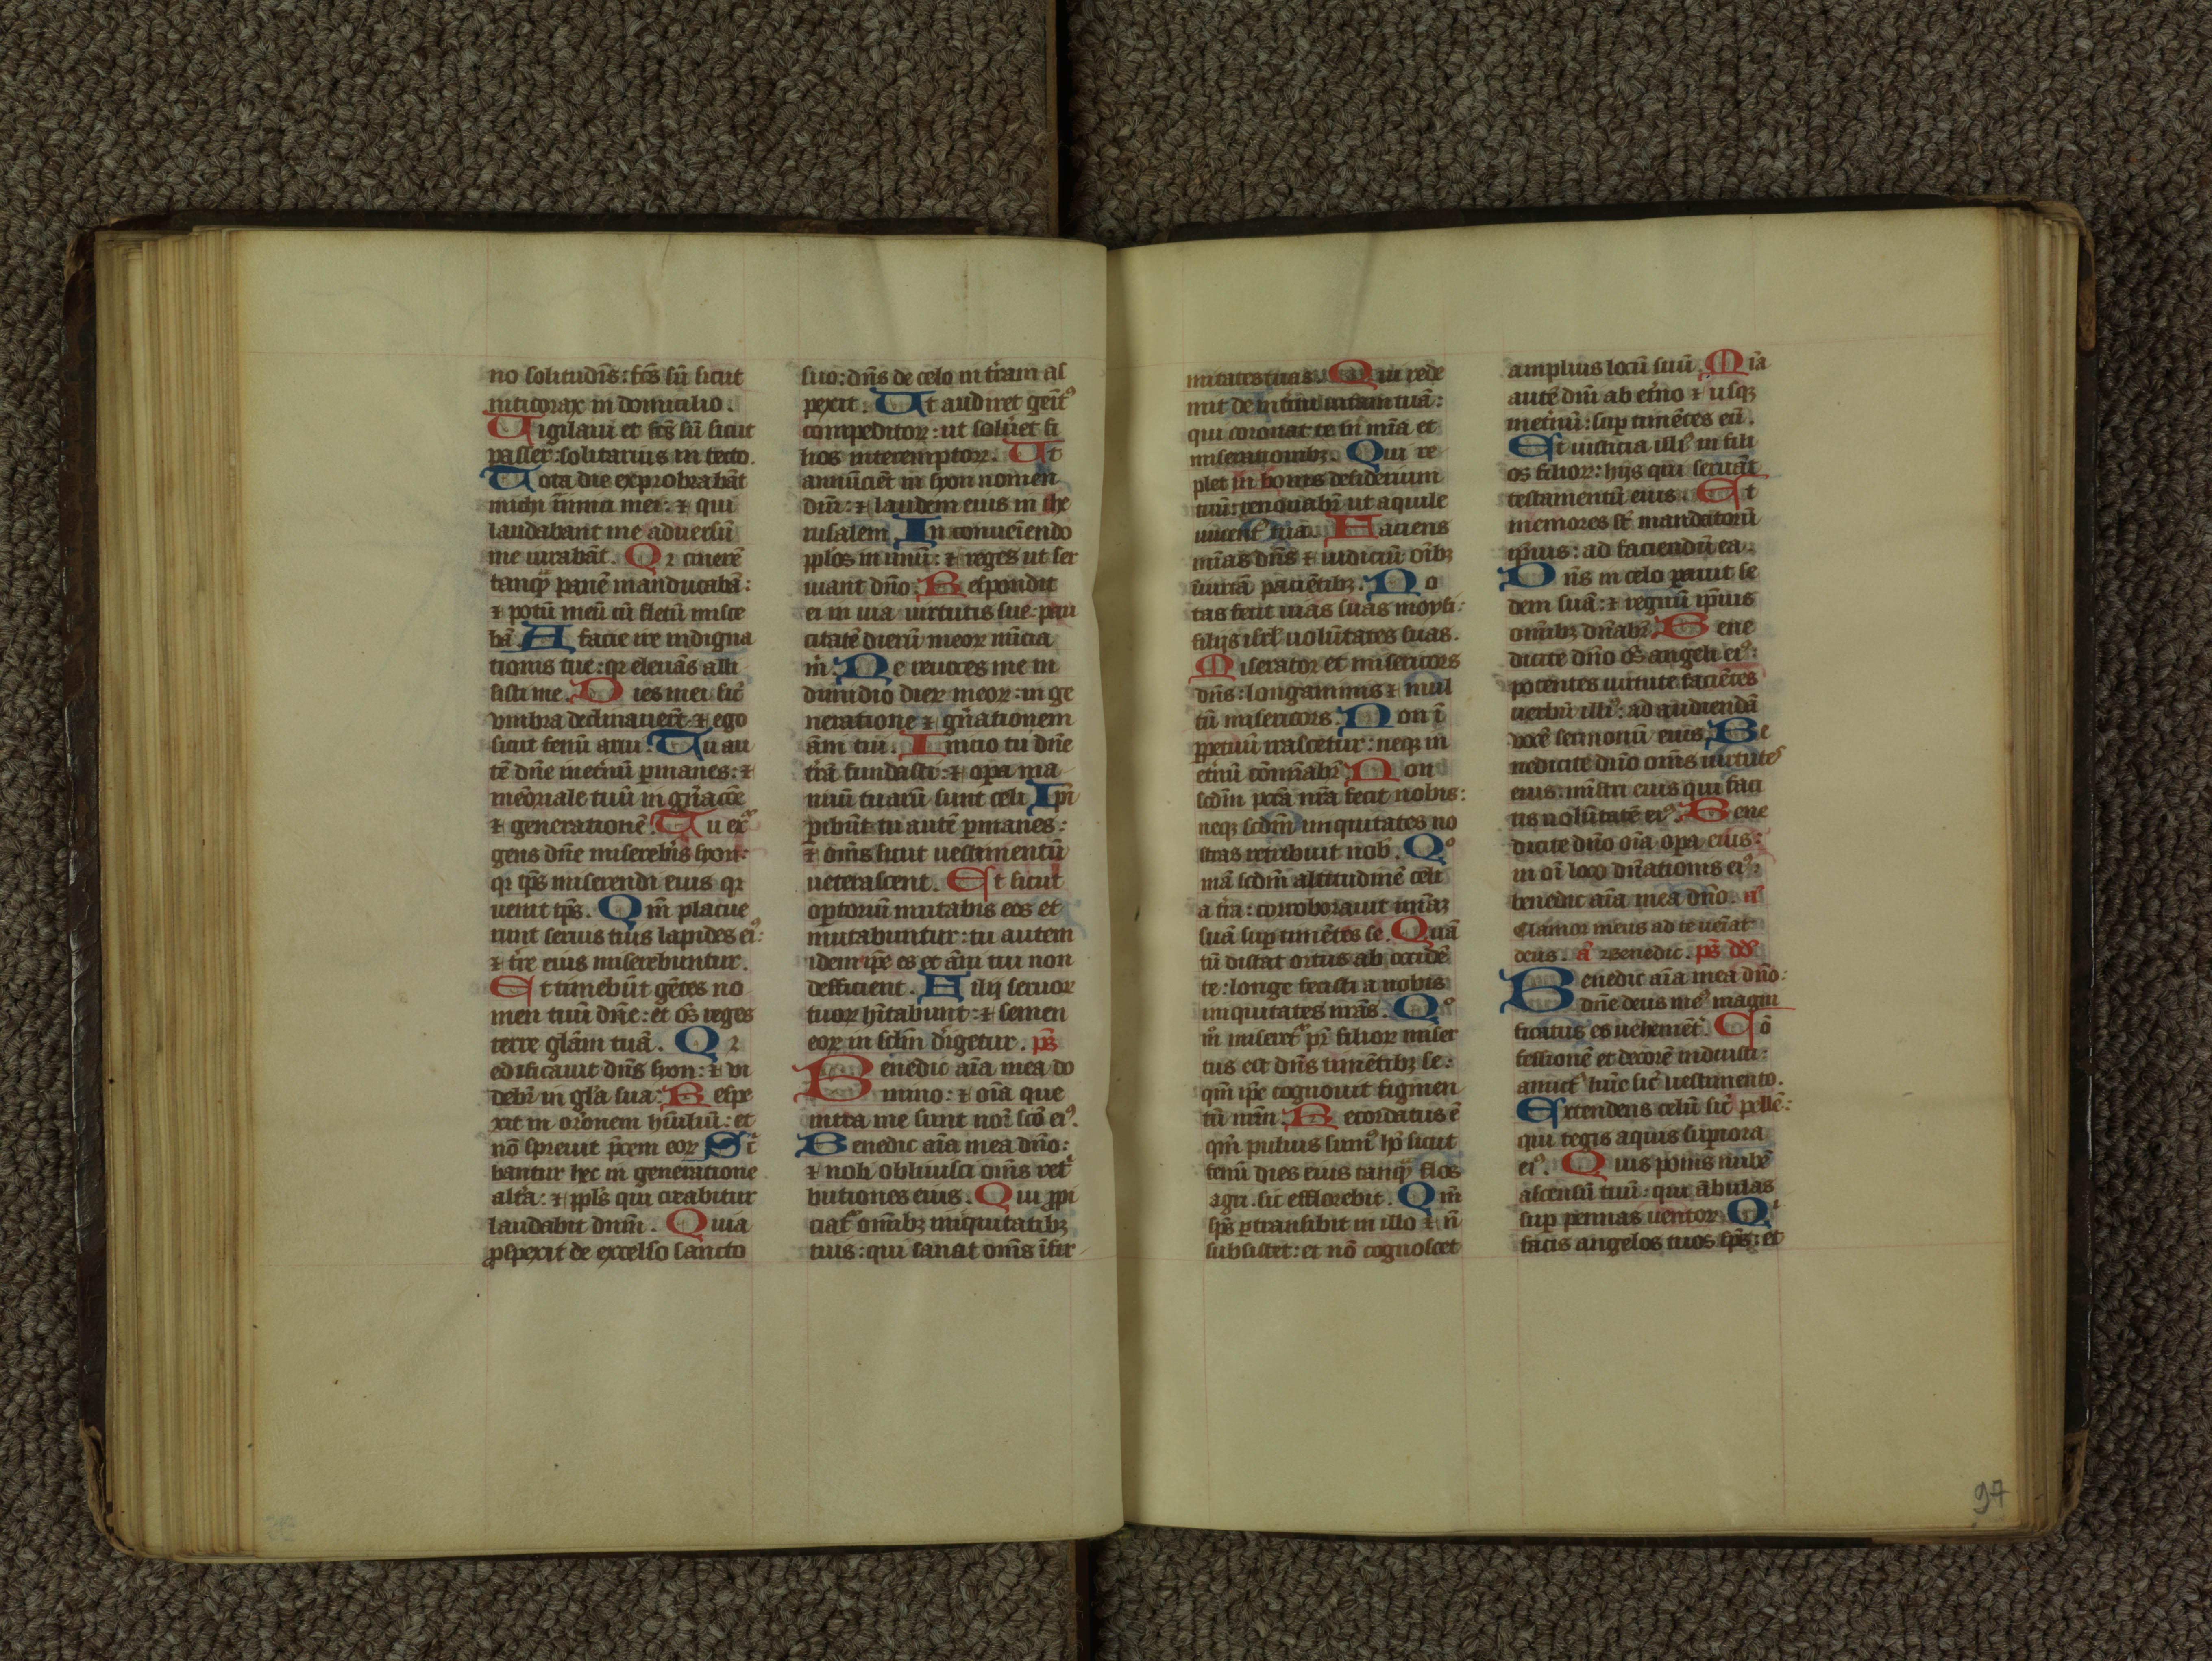 no solitudīs: fc̄s sū sicut
nicticorax in domicilio.
Uigilaui et fc̄s sū sicut
passer: solitarius in tecto.
Tota die exprobrabāt
michi īimici mei: ⁊ qui
laudabant me aduersū
me iurabāt. Qꝛ cinerē
tanqͣ panē manducabā:
⁊ potū meū cū fletu misce
bā A facie ire indigna
tionis tue: qꝛ eleuās alli
sisti me. Dies mei sic̄
vmbra declinauerūt ⁊ ego
sicut fenū arui. Tu au
tē dn̄e inet̄nū ꝑmanes: ⁊
memōriale tuū in gn̄acōe
⁊ generationē. Tu ex̄
gens dn̄e misereb̄is syon:
qꝛ tp̄s miserendi eius qꝛ
uenit tp̄s. Qm̄ placue
runt seruis tuis lapides eiꝰ:
⁊ t̄re eius miserebuntur.
Et timebūt gētes no
men tuū dn̄e: et om̄s reges
terre gl̄am tuā. Qꝛ
edificauit dn̄s syon: ⁊ vi
debr̄ in gl̄a sua. Respe
xit in or̄onem hūiliū: et
nō spreuit p̄cem eoꝝ Sc̄
bantur hec in generatione
alt̄a: ⁊ ppl̄s qui creabitur
laudabit dnm̄. Quia
ꝓspexit de excelso sancto
suo: dn̄s de celo in t̄ram as
pexit. Ut audiret gem̄tꝰ
compeditoꝝ: ut solu̅et fi
lios interemptoꝝ. Ut
annūciēt in syon nomen
dn̄i: ⁊ laudem eius in ihe
rusalem In conueniēdo
ppl̄os in unū: ⁊ reges ut ser
uiant dn̄o. Respondit
ei in uia uirtutis sue: pau
citatē dierū meoꝝ nūcia
m̄. Ne reuoces me in
dimidio dieꝝ meoꝝ: in ge
neratione ⁊ gn̄ationem
ām tui. Inicio tu dn̄e
t̄rā fundasti: ⁊ opa ma
nuū tuarū sunt celi Ipī
ꝑibūt tu autē ꝑmanes:
⁊ om̄s sicut uestimentū
ueterascent. Et sicut
optoriū mutabis eos et
mutabuntur: tu autem
idem ip̄e es et āni tui non
defficient. Filij seruoꝝ
tuoꝝ hītabunt: ⁊ semen
eoꝝ in sc̄lm d̄rigetur. ps̄
Benedic aīa mea do
mino: ⁊ oīa que
intra me sunt noī sc̄o eiꝰ.
Benedic aīa mea dn̄o:
⁊ noli obliuisci om̄s ret̄
butiones eius. Qui ꝓpi
ciat᷑ om̄ibꝫ iniquitatibꝫ
tuis: qui sanat om̄s īfir
mitates tuas. Qui rede
mit de in̄tiu uitam tuā:
qui coronat te in mīa et
miserationibꝫ. Qui re
plet in bonis desiderium
tuū: renouabr̄ ut aquile
iuuent᷑ tua. Faciens
mīas dn̄s ⁊ iudiciū oībꝫ
iuriā pacientibꝫ. No
tas fecit uias suas moysi:
filijs isrl̄ uolūtates suas.
Miserator et misericors
dn̄s: longanimis ⁊ mul
tū misericors. Non ī
ꝑpetuū irascetur: neqꝫ in
et̄nū com̄iabr̄ Non
scd̄m pctā nr̄a fecit nobis:
neqꝫ scd̄m iniquitates no
stras retribuit nob̄. Qꝰ
niā scd̄m altitudinē celi
a t̄ra: corroborauit mīaꝫ
suā suꝑ timētes se. Quā
tū distat ortus ab occidē
te: longe fecisti a nobis
iniquitates nr̄as. Qꝰ
m̊ miseret᷑ pr̄ filioꝝ miser
tus est dn̄s timētibꝫ se:
qm̄ ip̄e cognouit figmen
tū nr̄m. Recordatus ē
qm̄ puluis sumꝰ hō sicut
fenū dies eius tanqͣ flos
agri. sic efflorebit. Qm̄
sp̄s ꝑtransibit in illo ⁊ n̄
subsistet: et nō cognoscet
amplius locū suū. Mīa
autē dn̄i ab et̄no ⁊ usqꝫ
inet̄nū: suꝑ timētes eū.
Et iusticia illiꝰ in fili
os filioꝝ: hijs qui seruāt
testamentū eius. Et
memores st̄ mandatorū
ip̄ius: ad faciendū ea.
Dn̄s in celo ꝑauit se
dem suā: ⁊ regnū ip̄ius
om̄ibꝫ dn̄abr̄. Bene
dicite dn̄o om̄s angeli eiꝰ:
potentes uirtute faciētes
uerbū illiꝰ: ad audiendā
vocē sermonū eius. Be
nedicite dn̄o om̄s uirtutes
eius: mīstri eius qui faci
tis uolūtatē eiꝰ. Bene
dicite dn̄o oīa opa eius:
in oī loco dn̄ationis eiꝰ:
benedic aīa mea dn̄o. a᷑
Clamor meus ad te ueniat
deus. a᷑ Benedic. ps̄ dd̄
Benedic aīa mea dn̄o:
dn̄e deus meꝰ magni
ficatus es uehemēt᷑. Cō
fessionē et decorē induisti:
amict᷑ lum̄e sic̄ uestimento.
Extendens celū sic̄ pellē:
qui tegis aquis supiora
eiꝰ. Qui ponis nubē
ascensū tuū: qui ābulas
suꝑ pennas uentoꝝ Qi
facis angelos tuos sp̄s: et
97